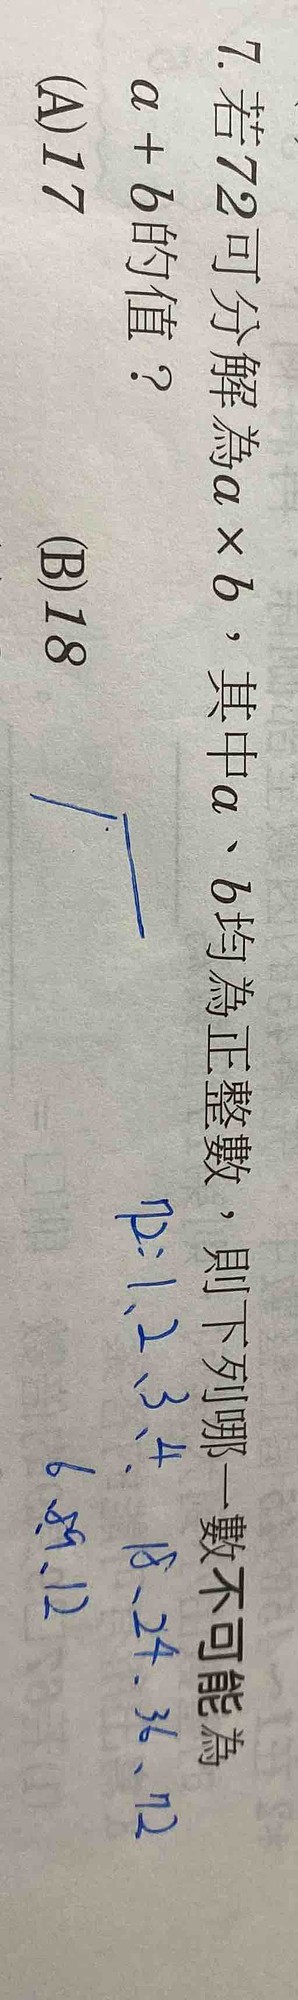 7. 若72可分解為a×b，其中a、b均為正整數，則下列哪一數不可能為
a+b的值？
72:1、2、3、4、 18、24、36、72
6、8、9、12
(A)17 (B)18